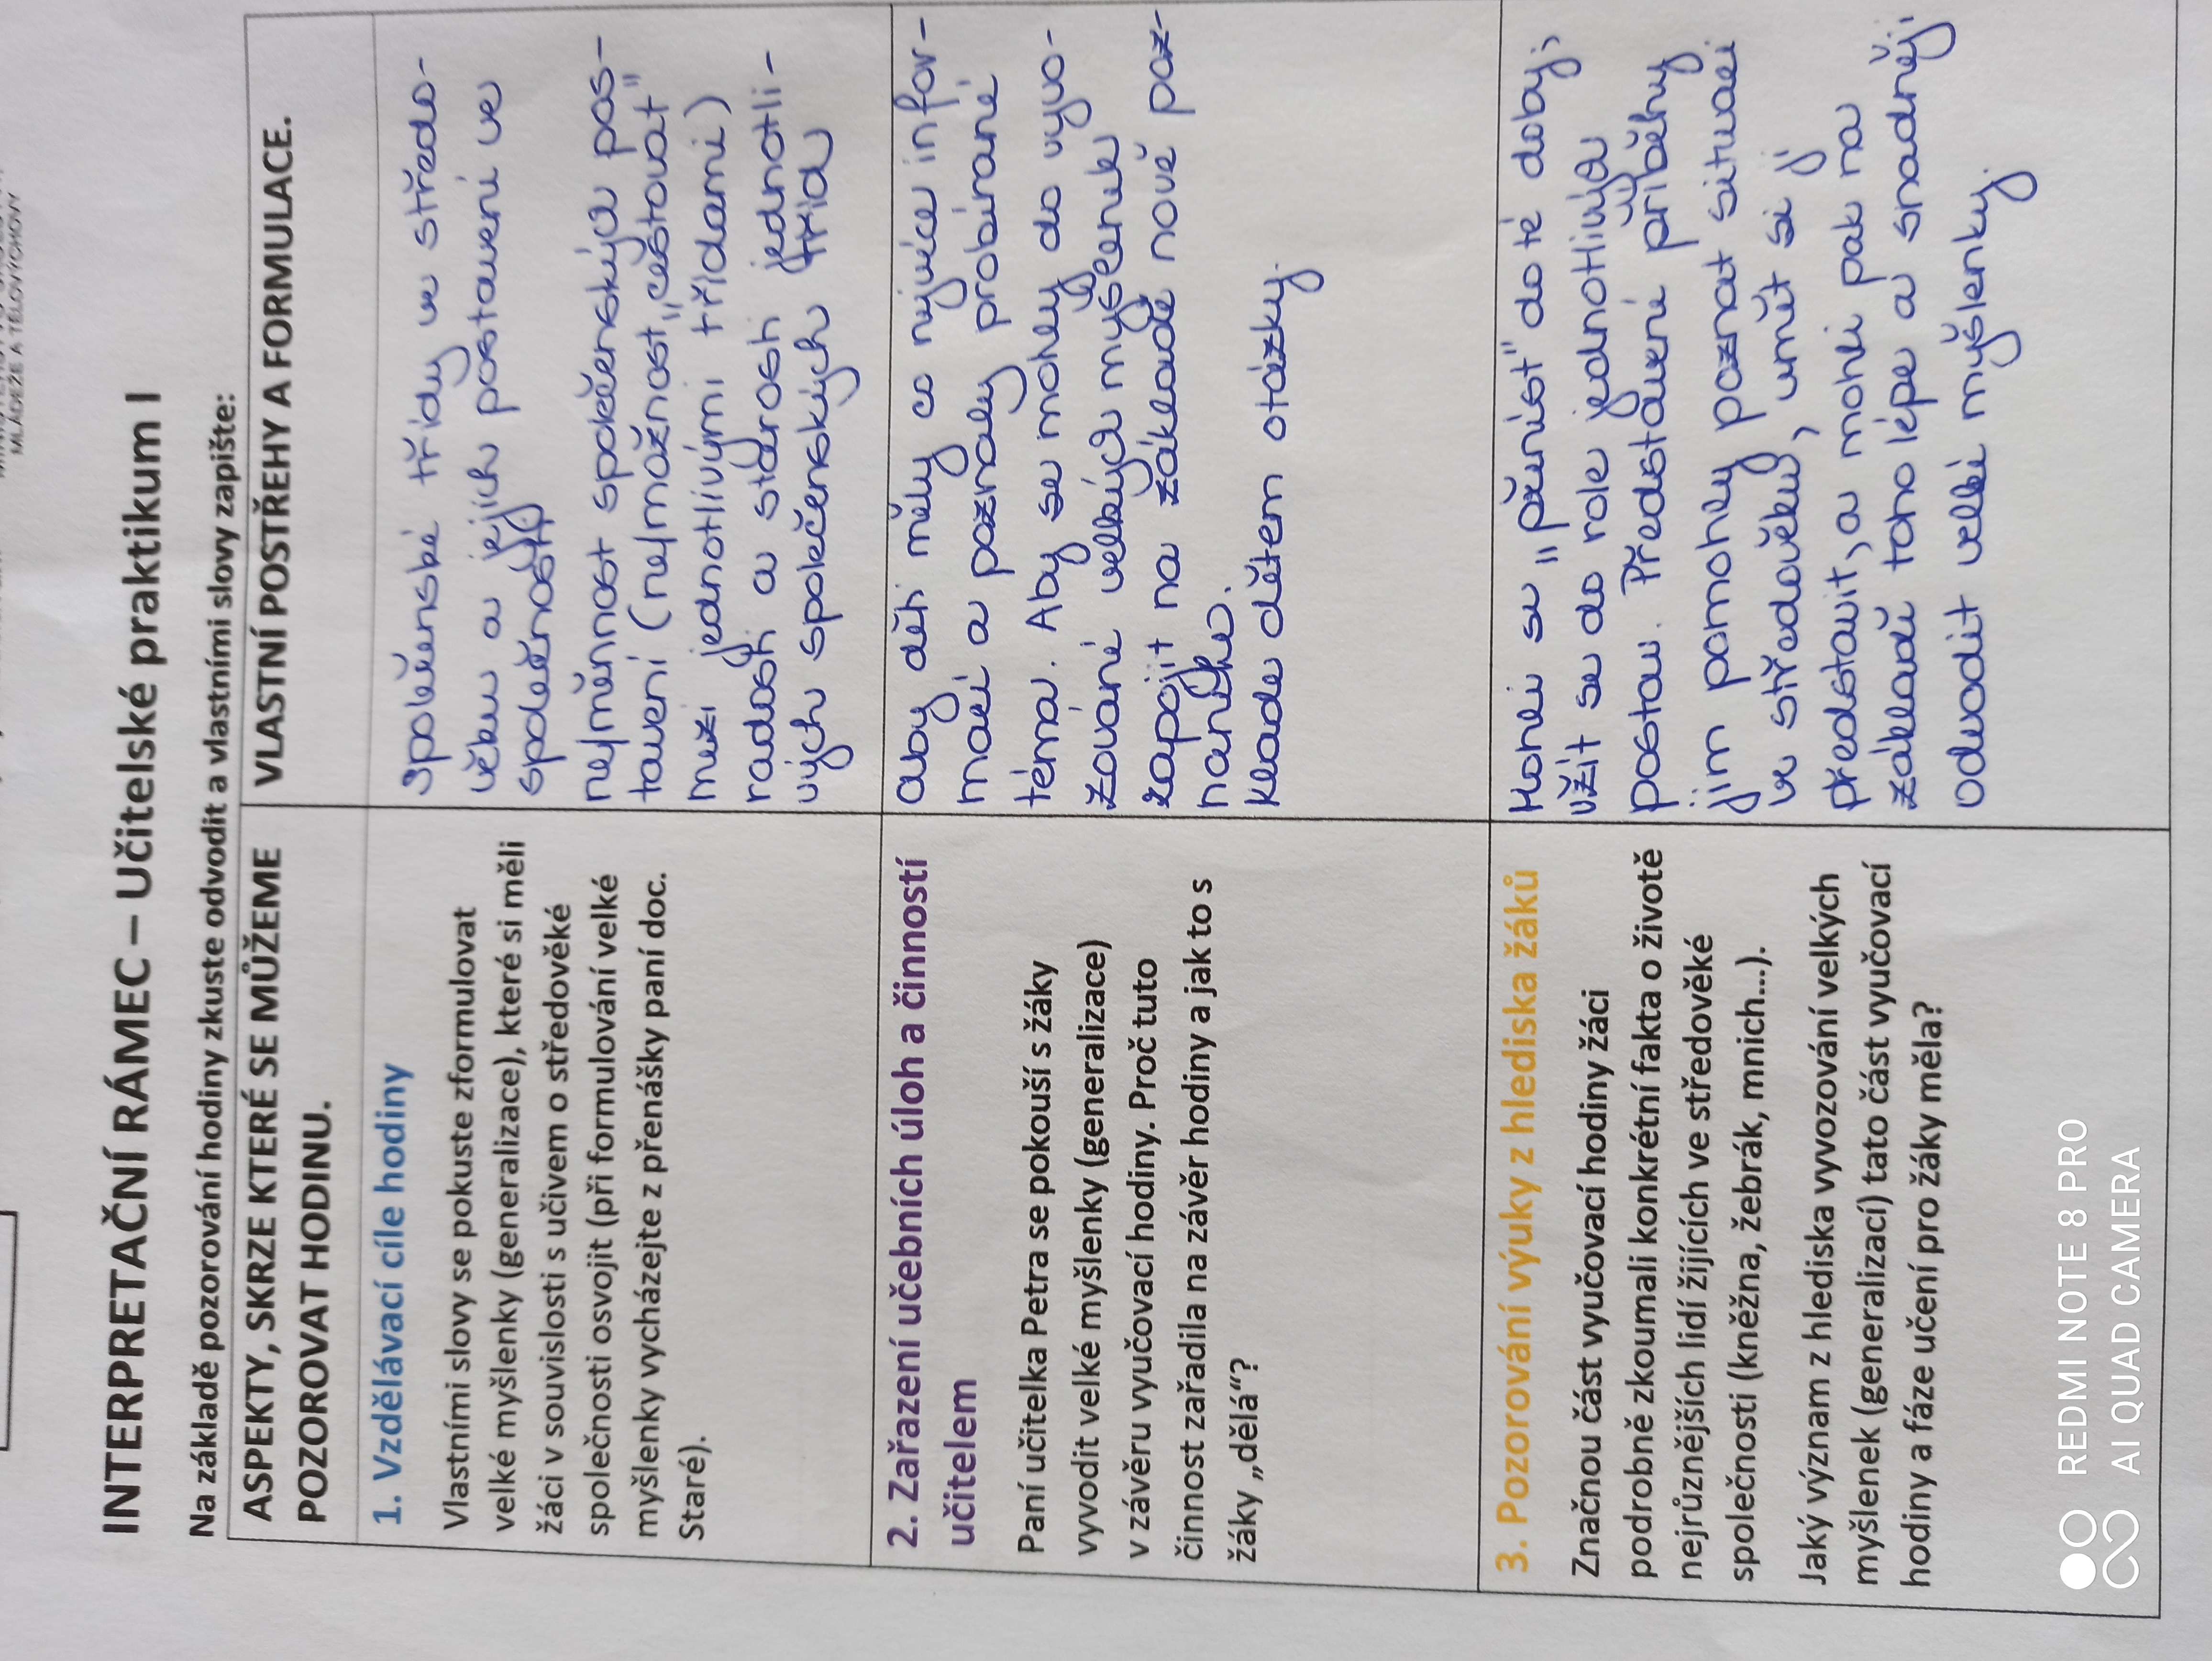 MLÁDEŽE A TĚLOVÝCHOVY
INTERPRETAČNÍ RÁMEC – Učitelské praktikum I
Na základě pozorování hodiny zkuste odvodit a vlastními slovy zapište:
ASPEKTY, SKRZE KTERÉ SE MŮŽEME
POZOROVAT HODINU.
VLASTNÍ POSTŘEHY A FORMULACE.
1. Vzdělávací cíle hodiny
Vlastními slovy se pokuste zformulovat
velké myšlenky (generalizace), které si měli
žáci v souvislosti s učivem o středověké
společnosti osvojit (při formulování velké
myšlenky vycházejte z přenášky paní doc.
Staré).
Společenské třídy ve středo-
věku a jejich postavení ve
společnosti
ne/měnnost společenských pos-
tavení (ne/možnost „cestovat"
mezi jednotlivými třídami)
radosti a starosti jednotli-
vých společenských tříd
2. Zařazení učebních úloh a činností
učitelem
Paní učitelka Petra se pokouší s žáky
vyvodit velké myšlenky (generalizace)
v závěru vyučovací hodiny. Proč tuto
činnost zařadila na závěr hodiny a jak to s
žáky „dělá“?
Aby děti měly co nejvíce infor-
mací a poznaly probírané
téma. Aby se mohly do vyvo-
zování velkých myšlenek
zapojit na základě nově poz-
naného.
Klade dětem otázky.
3. Pozorování výuky z hlediska žáků
Značnou část vyučovací hodiny žáci
podrobně zkoumali konkrétní fakta o životě
nejrůznějších lidí žijících ve středověké
společnosti (kněžna, žebrák, mnich...).
Jaký význam z hlediska vyvozování velkých
myšlenek (generalizací) tato část vyučovací
hodiny a fáze učení pro žáky měla?
Mohli se „přenést" do té doby;
vžít se do role jednotlivých
postav. Představení příběhy
jim pomohly poznat situaci
ve středověku, umět si ji
představit, a mohli pak na
základě toho lépe a snadněji
odvodit velké myšlenky.
REDMI NOTE 8 PRO
AI QUAD CAMERA